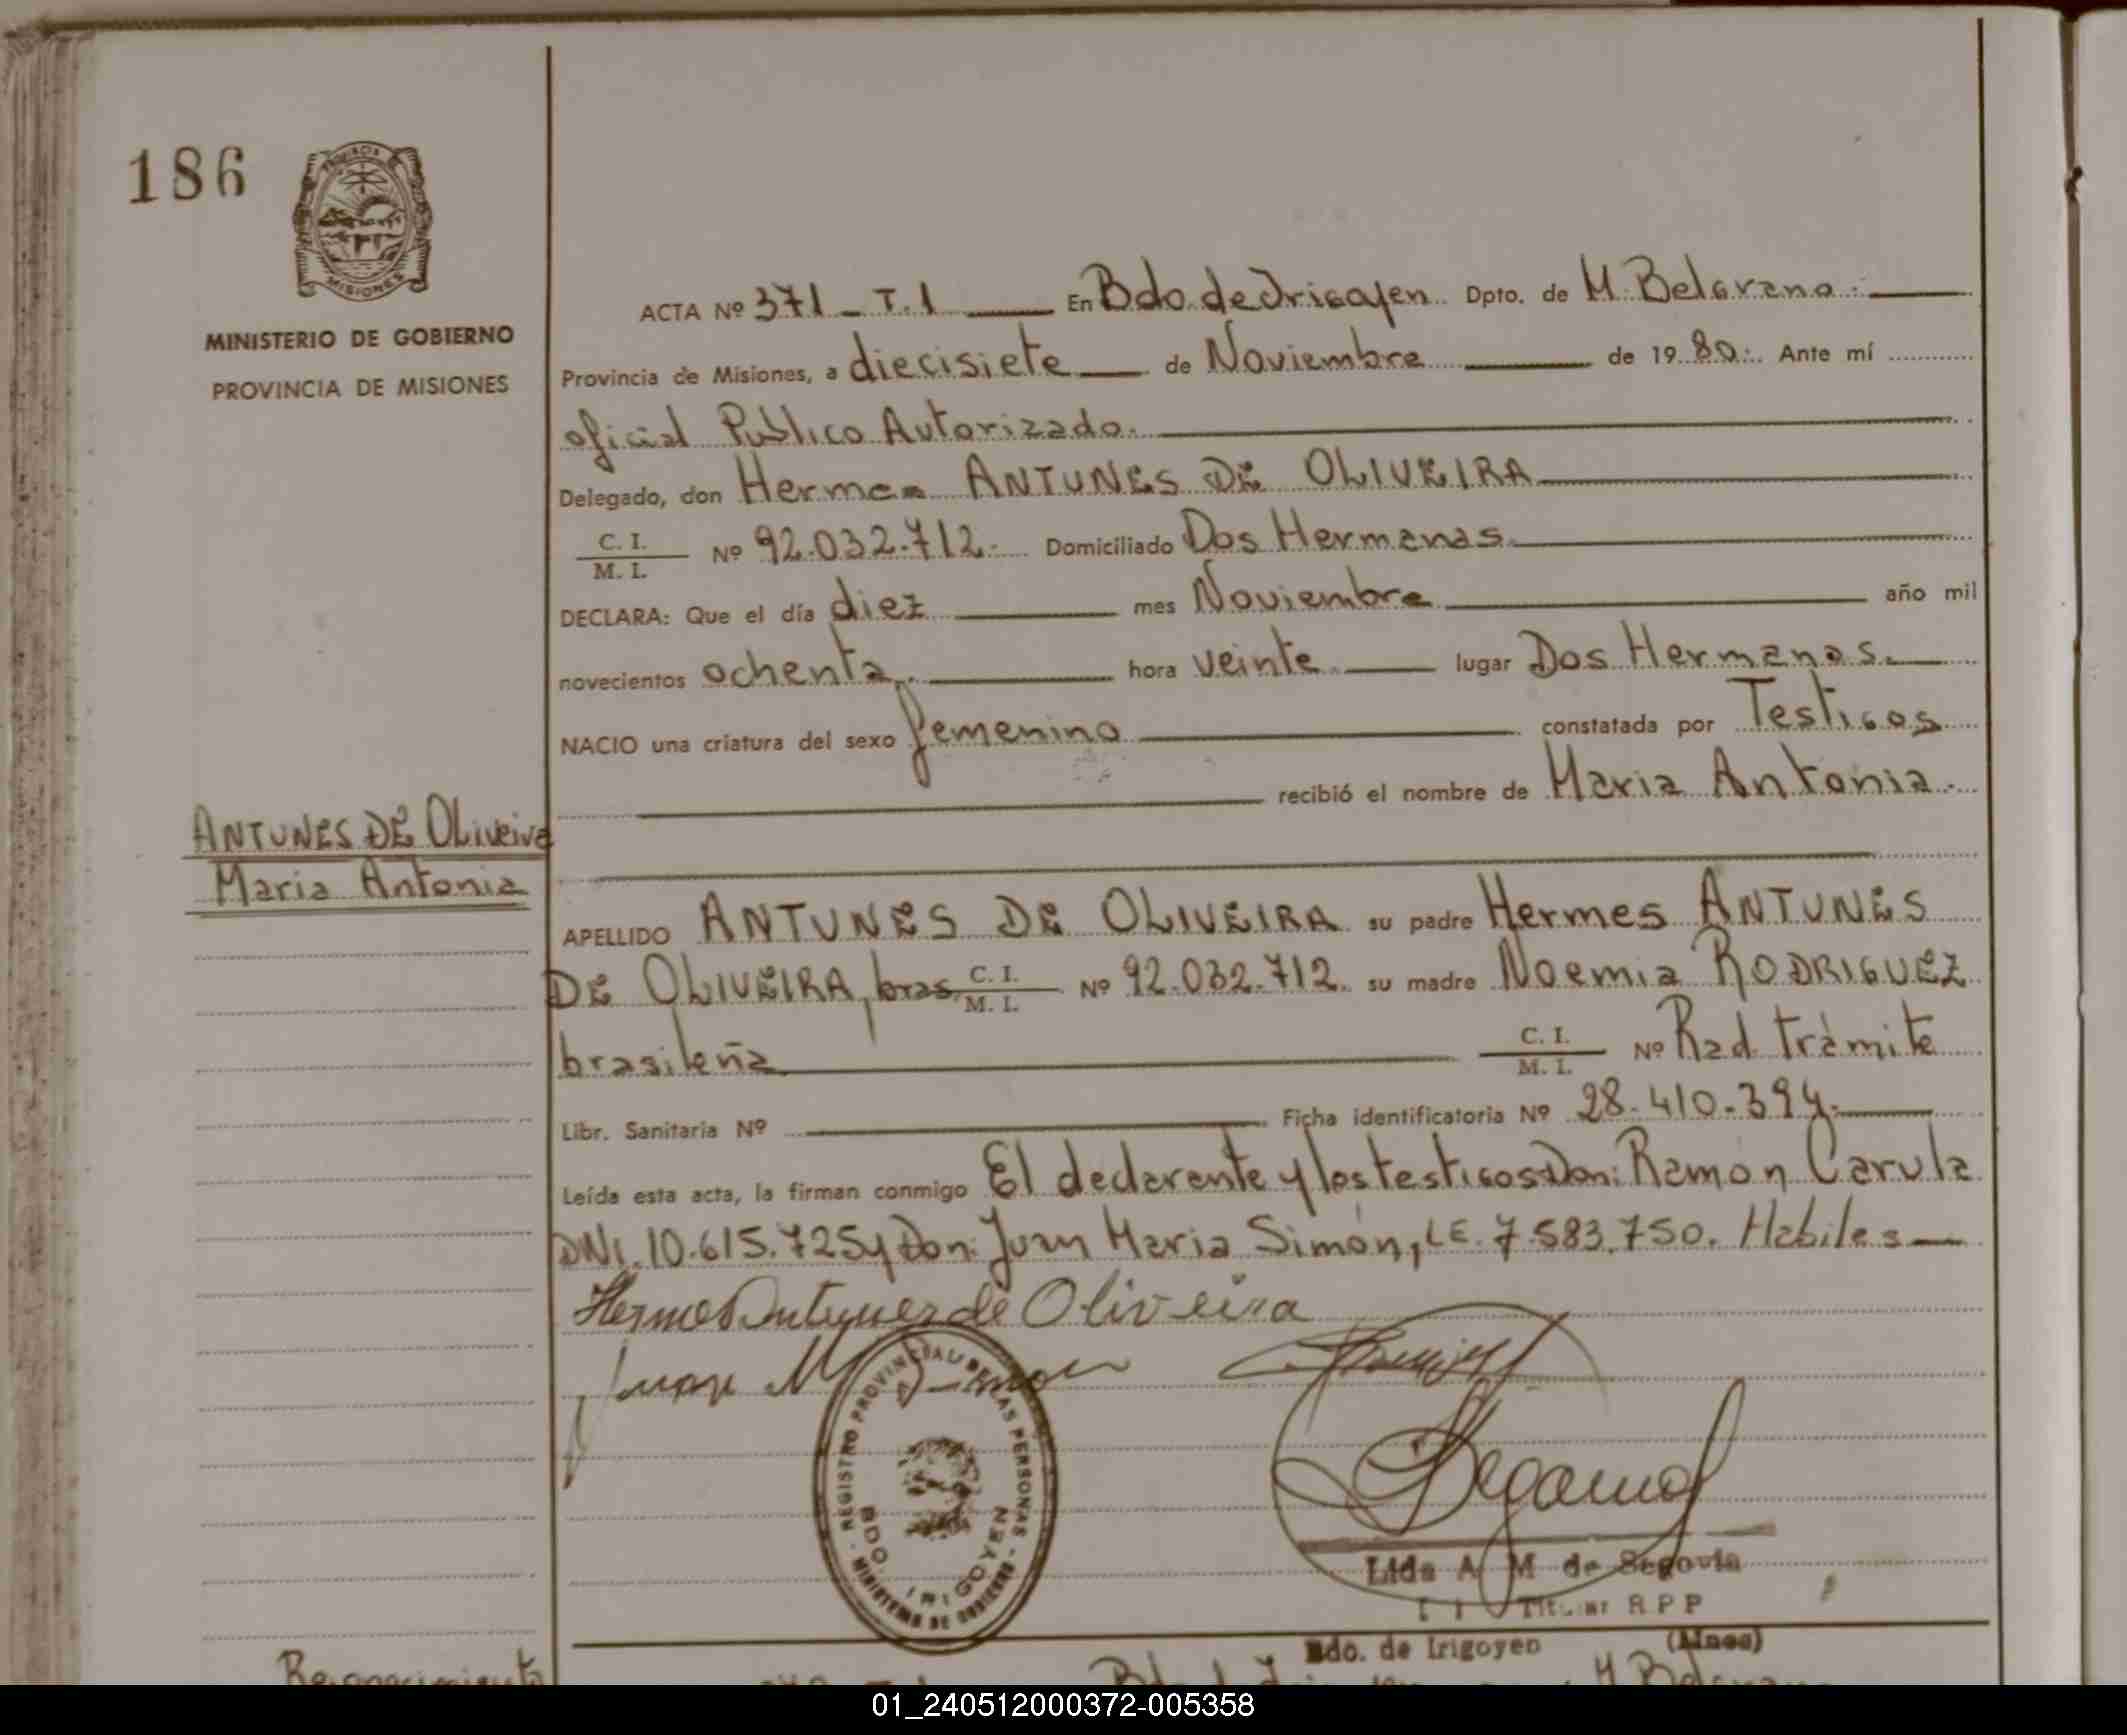 186
PROVINCIA
MISIONES
MINISTERIO DE GOBIERNO
PROVINCIA DE MISIONES
ANTUNES DE OLiveira
Maria Antonia
ACTA Nº 371 - T. 1 En Bdo. de Irigoyen Dpto. de M. Belgrano.
Provincia de Misiones, a diecisiete de Noviembre de 19 80. Ante mí
oficial Publico Autorizado.
Delegado, don Hermes ANTUNES DE OLIVEIRA
C. I.
M. I. Nº 92.032.712. Domiciliado Dos Hermanas.
DECLARA: Que el día diez mes Noviembre año mil
novecientos ochenta. hora veinte lugar Dos Hermanas.
NACIO una criatura del sexo femenino constatada por Testigos
recibió el nombre de Maria Antonia.
APELLIDO ANTUNES DE OLIVEIRA su padre Hermes ANTUNES
DE OLIVEIRA, bras. C. I. M. I. Nº 92.032.712. su madre Noemia RODRIGUEZ
brasileña C. I. M. I. Nº Rad. tràmite
Libr. Sanitaria Nº Ficha identificatoria Nº 28.410.394.
Leída esta acta, la firman conmigo El declarante y los testigos Don: Ramón Carvla
DNI. 10.615.725 y Don: Juan Maria Simón, LE. 7.583.750. Habiles
Hermes Antunes de Oliveira
Juan M Simon
REGISTRO PROVINCIAL DE LAS PERSONAS
MINISTERIO DE GOBIERNO
BDO. IRIGOYEN
Segovia
Lida A M de Segovia
Titular R P P
Bdo. de Irigoyen (Mnes)
Reconocimiento
01_240512000372-005358